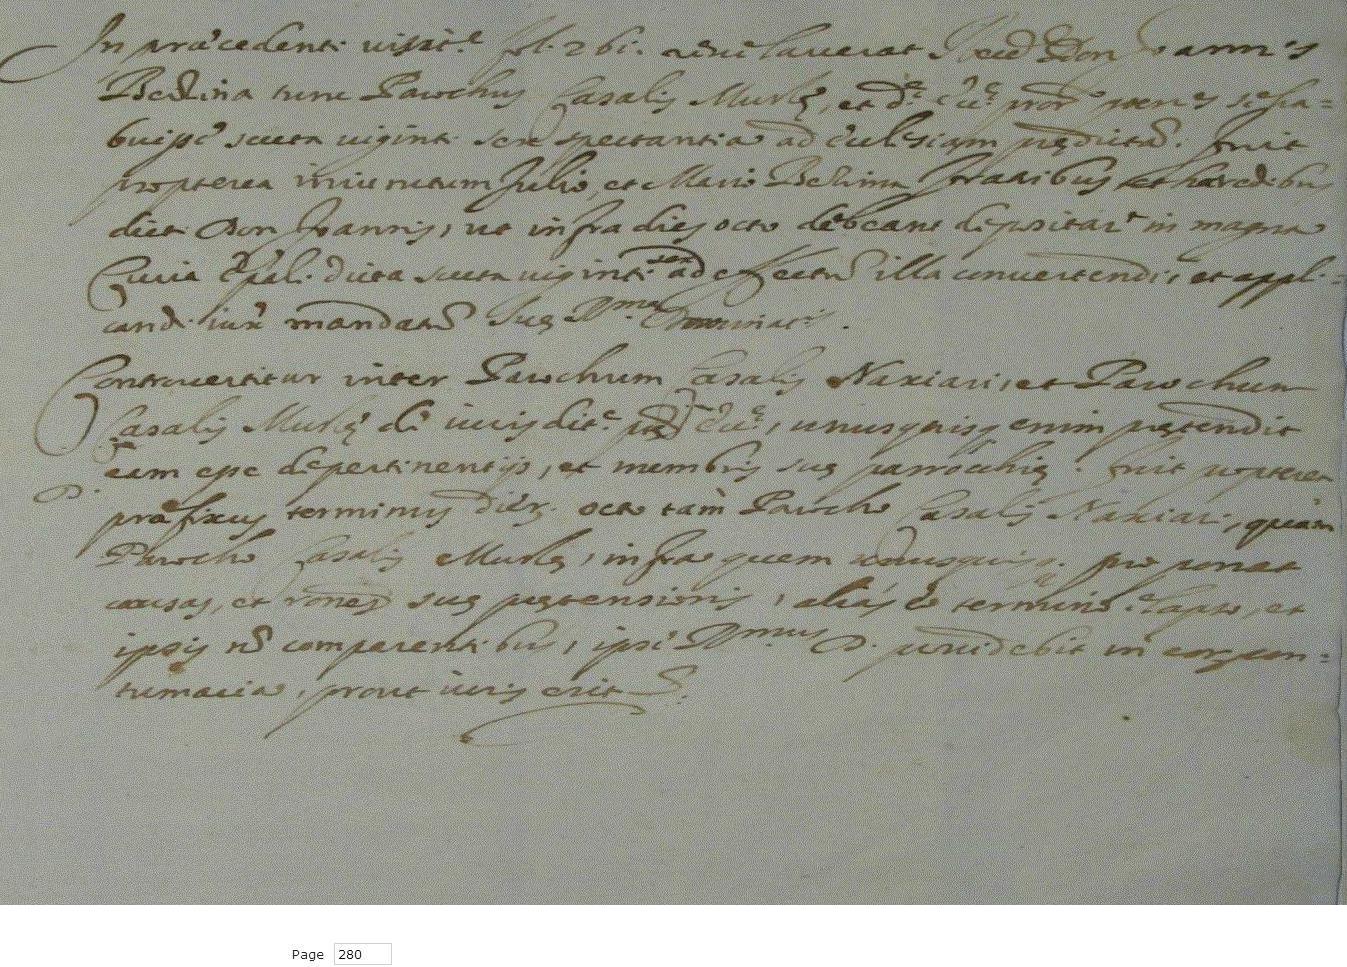 In præcedenti visit.e fol. 261. Revd Don Joannes
Bedina tunc Parochus Casalis Muslę, et penes se ha=
buisse scuta viginti spectantia ad ecclesiam prędictā. fuit
propterea iniunctum Julio, et Mario Bedina fratribus et hæredibus
dict. Don Joannis, ut infra dies octo debeant depositar' in magna
Curia Ep̄ali dicta scuta viginti ad effectū illa convertendi, et appli=
candi iux.a mandatū suę D. mę Dominat.s.
Controvertitur inter Parochum Casalis Naxiari, et Parochum
Casalis Muslę dē iurisdit.e pręd. eccl.e, unusquisq enim prętendit
eam esse de pertinentijs, et membris suę parrochię. fuit propterea
D.
præfixus terminus dierū octo tam Parocho Casalis Naxiari, quam
Parocho Casalis Muslę, infra quem unusquisq. proponat
causas, et rōnes suę prętensionis, alias ēo termino elapso, et
ipsis nō comparentibus, ipse D. mus D. providebit in eorum con=
tumacia, prout iuris erit S.
Page 280